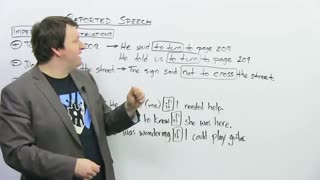 REPORTED SPEECH
IMPE
209. → He said to turn to page 209.
He told us to turn to page 209
the street → The sign said not to cross the street.
(me) if I needed help.
to know if she was here.
was wondering if I could play guitar.